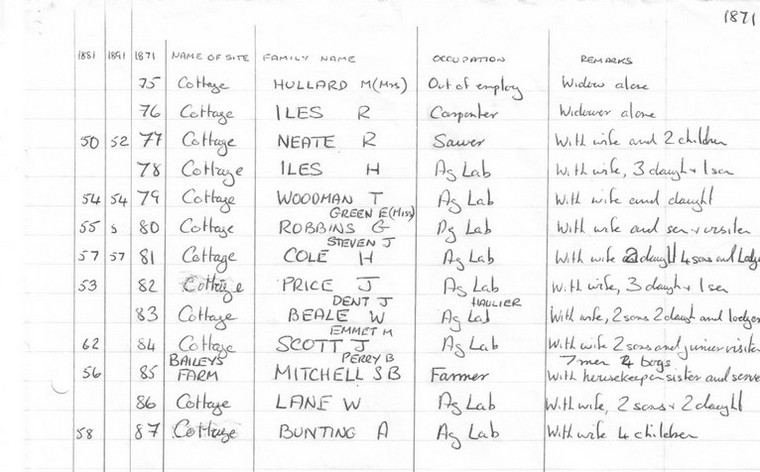 1871
1881 1891 1871 NAME OF SITE FAMILY NAME OCCUPATION REMARKS
75 Cottage HULLARD M(Mrs) Out of employ Widow alone
76 Cottage ILES R Carpenter Widower alone
50 52 77 Cottage NEATE R Sawer With wife and 2 children
78 Cottage ILES H Ag Lab With wife, 3 daught + 1 son
54 54 79 Cottage WOODMAN T Ag Lab With wife and daught
GREEN E(Miss)
55 s 80 Cottage ROBBINS G Ag Lab With wife and son + visiter
STEVEN J
57 57 81 Cottage COLE H Ag Lab With wife 2 daught 4 sons and Lodge
53 82 Cottage PRICE J Ag Lab With wife, 3 daugh + 1 son
DENT J HAULIER
83 Cottage BEALE W Ag Lab With wife, 2 sons 2 daught and lodger
EMMET M
62 84 Cottage SCOTT J Ag Lab With wife 2 sons and junier visiter
BAILEYS PERRY B 7 men 4 boys
56 85 FARM MITCHELL S B Farmer With housekeeper sister and serve
86 Cottage LANE W Ag Lab With wife, 2 sons + 2 daught
58 87 Cottage BUNTING A Ag Lab With wife 4 children